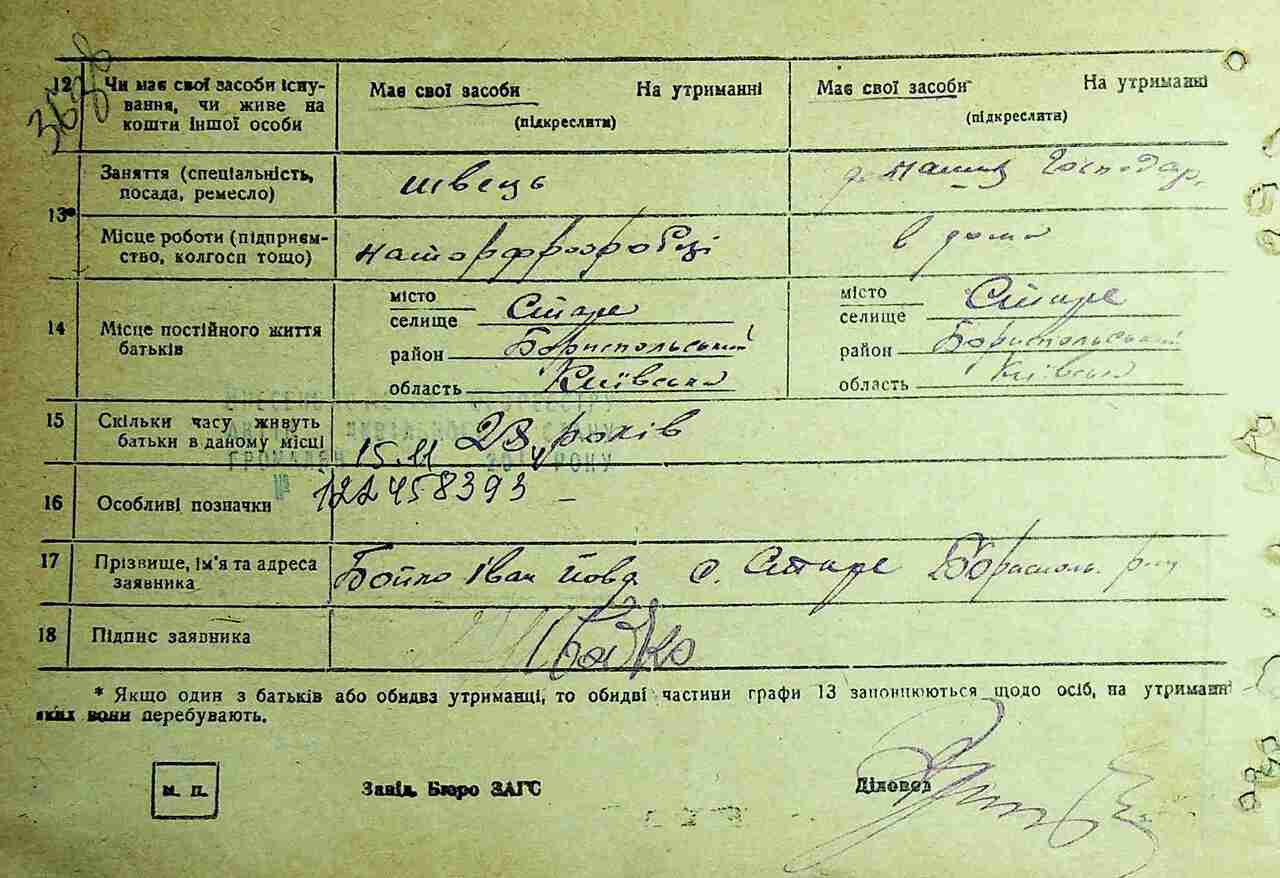 3638
12 Чи має свої засоби існування, чи живе на кошти іншої особи
Має свої засоби На утриманні
(підкреслити)
Має свої засоби На утриманні
(підкреслити)
13*
Заняття (спеціальність, посада, ремесло)
швець
домашн Господар.
Місце роботи (підприємство, колгосп тощо)
на торфрозробці
в дома
14 Місце постійного життя батьків
місто
селище Старе
район Бориспольський
область Київська
місто
селище Старе
район Бориспольський
область Київська
15 Скільки часу живуть батьки в даному місці
23 років
ВНЕСЕНО РЕЄСТРУ
ГРОМАДЯН 15.11 2014 РОКУ
№ 122458393
16 Особливі позначки
–
17 Прізвище, ім'я та адреса заявника
Бойко Іван Йовд. с. Старе Бориспол. р-ну
18 Підпис заявника
Бойко
* Якщо один з батьків або обидва утриманці, то обидві частини графи 13 заповнюються щодо осіб, на утриманні
яких вони перебувають.
М. П.
Завід. Бюро ЗАГС
Діловод